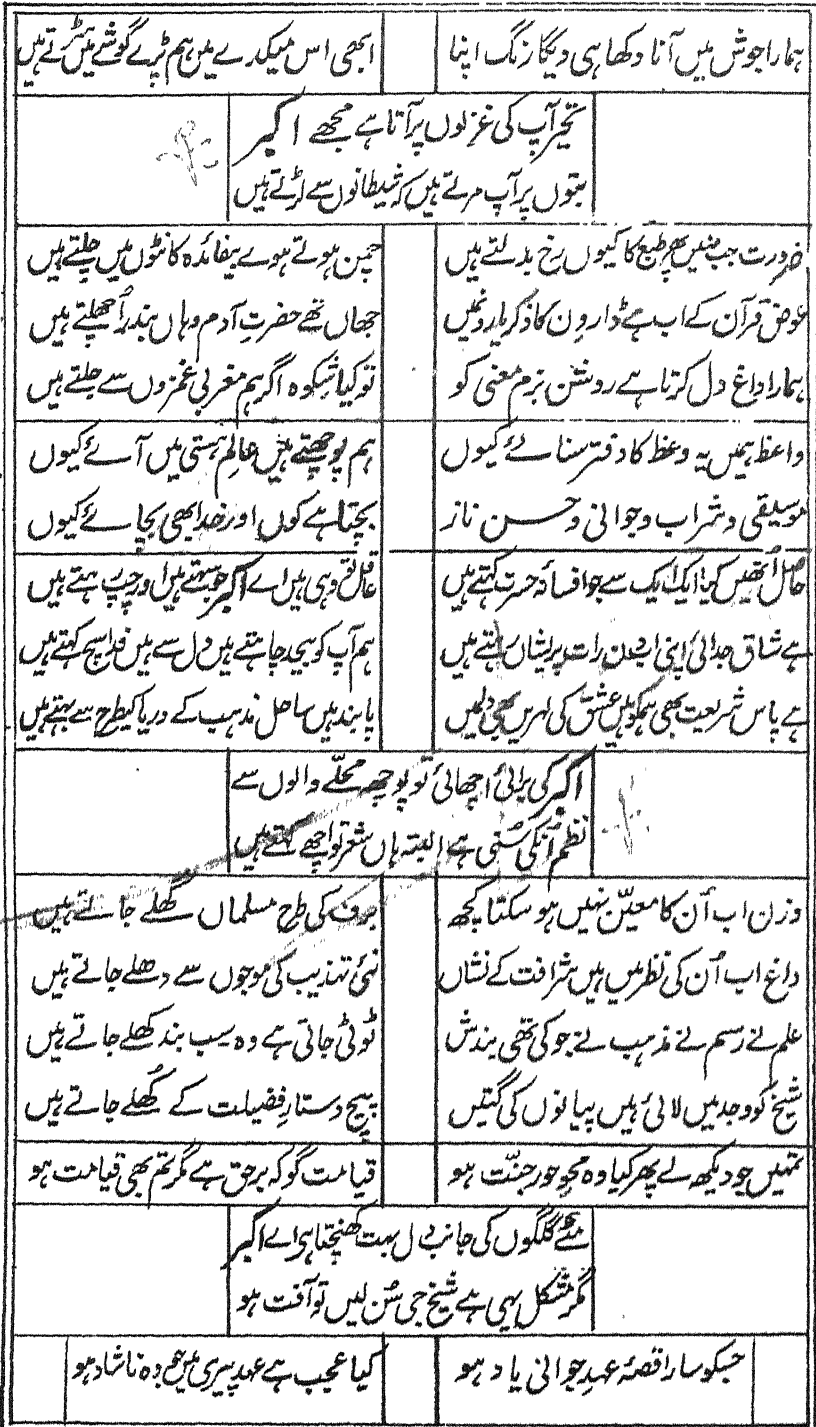 ہمارا جوش میں آنا دکھا ہی دیگا رنگ اپنا ابھی اس میکدے میں ہم پڑے گوشے میں سڑتے ہیں
تحیر آپ کی غزلوں پر آتا ہے مجھے اکبر
بتوں پر آپ مرتے ہیں کہ شیطانوں سے لڑتے ہیں
ضرورت جب نہیں پھر طبع کا کیوں رخ بدلتے ہیں چمن ہوتے ہوے بیفائدہ کانٹوں میں چلتے ہیں
عوض قرآن کے اب ہے ڈارون کا ذکر یارونمیں جہاں تھے حضرتِ آدم وہاں بندر اُچھلتے ہیں
ہمارا داغ دل کرتا ہے روشن بزم معنی کو تو کیا شکوہ اگر ہم مغربی غمزوں سے جلتے ہیں
واعظ ہمیں یہ وعظ کا دفتر سنائے کیوں ہم پوچھتے ہیں عالمِ ہستی میں آئے کیوں
موسیقی و شراب و جوانی و حسن ناز بچتا ہے کون اور خدا بھی بچائے کیوں
حاصل اُنھیں کیا ایک ایک سے جو افسانۂ حسرت کہتے ہیں عاقل تو وہی ہیں اے اکبر جو سہتے ہیں اور چپ رہتے ہیں
ہے شاق جدائی اپنی اب دن رات پریشاں رہتے ہیں ہم آپ کو بیحد چاہتے ہیں دل سے ہیں فدا سچ کہتے ہیں
ہے پاس شریعت بھی ہمکو ہیں عشق کی لہریں بھی دلمیں پابند ہیں ساحل مذہب کے دریا کیطرح سے بہتے ہیں
اکبر کی برائی اچھائی تو پوچھ محلّے والوں سے
نظم اُنکی سُنی ہے البتہ ہاں شعر تو اچھے کہتے ہیں
وزن اب اُن کا معیّن نہیں ہو سکتا کچھ برف کی طرح مسلماں گھلے جاتے ہیں
داغ اب اُن کی نظر میں ہیں شرافت کے نشاں نئی تہذیب کی موجوں سے دھلے جاتے ہیں
علم نے رسم نے مذہب نے جو کی تھی بندش ٹوٹی جاتی ہے وہ سب بند کھلے جاتے ہیں
شیخ کو وجد میں لائی ہیں پیانوں کی گتیں پیچ دستارِ فضیلت کے کُھلے جاتے ہیں
تمہیں جو دیکھ لے پھر کیا وہ محوِ حور جنّت ہو قیامت گو کہ برحق ہے مگر تم بھی قیامت ہو
مئے گلگوں کی جانب دل بہت کھنچتا ہی اے اکبر
مگر مشکل یہی ہے شیخ جی سُن لیں تو آفت ہو
جسکو سارا قصۂ عہدِ جوانی یاد ہو کیا عجب ہے عہد پیری میں جو وہ ناشاد ہو